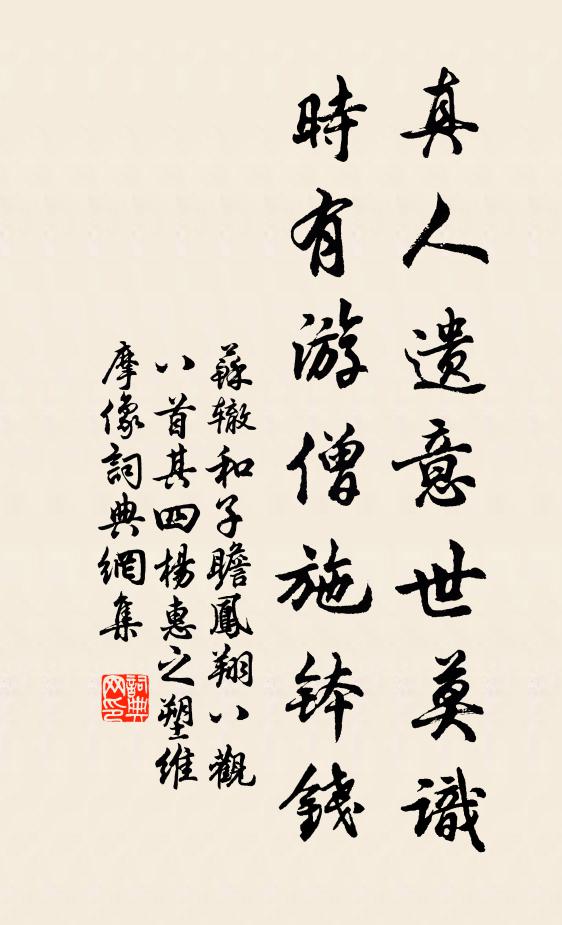 真人遗意世莫識
時有游僧施鉢錢
蘇辙和子瞻鳳翔八觀
八首其四楊惠之塑維
摩像詞典網集
詞典
网印